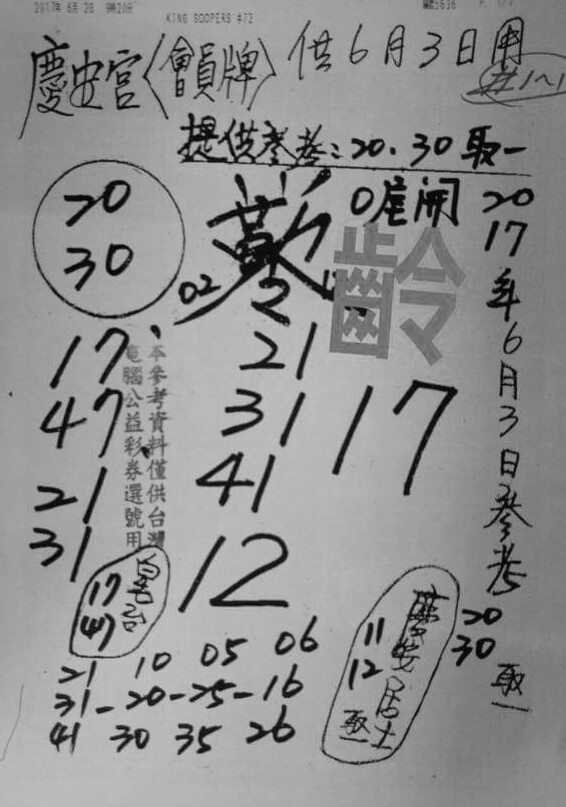 2017年 6月 2日 9時20分
KING SOOPERS #72
P. 1/1
慶安宮〈會員牌〉供6月3日用
#1~1
提供參考:20.30 取一
20
30
0尾開
02
2
齡
2017年6月3日參考
20
30
取一
17
47
21
31
21
31
41
12
17
本參考資料僅供台灣
電腦公益彩券選號用
17
47
11
12
取一
居士
21 10 05 06
31-20-25-16
41 30 35 26